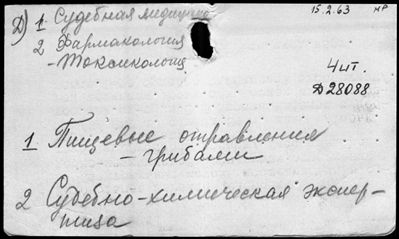 15.2.63 мр
Д) 1 Судебная медицина
2 Фармакология
- Токсикология
4 шт.
Д 28088
1 Пищевые отравления
- грибами
2 Судебно-химическая экспер-
тиза